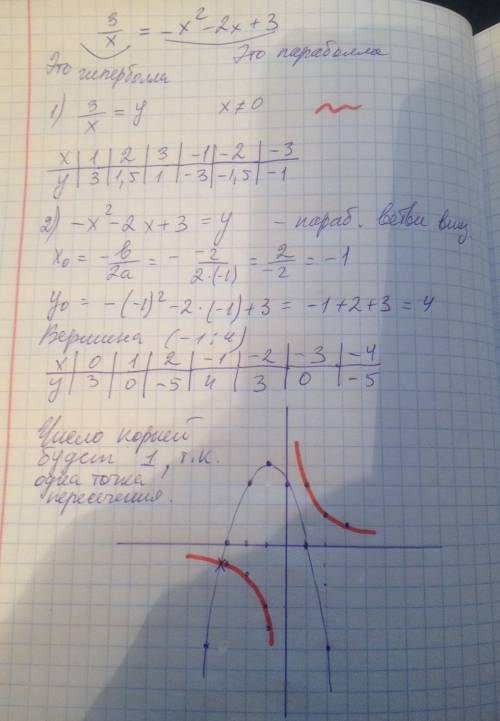 3/x = -x² - 2x + 3
Это гиперболла Это параболла
1) 3/x = y x ≠ 0
x | 1 | 2 | 3 | -1 | -2 | -3
y | 3 | 1,5 | 1 | -3 | -1,5 | -1
2) -x² - 2x + 3 = y - параб. ветви вниз.
x₀ = -b/2a = - -2/2·(-1) = 2/-2 = -1
y₀ = -(-1)² - 2·(-1) + 3 = -1 + 2 + 3 = 4
Вершина (-1; 4)
x | 0 | 1 | 2 | -1 | -2 | -3 | -4
y | 3 | 0 | -5 | 4 | 3 | 0 | -5
Число корней
будет 1, т.к.
одна точка
пересечения.